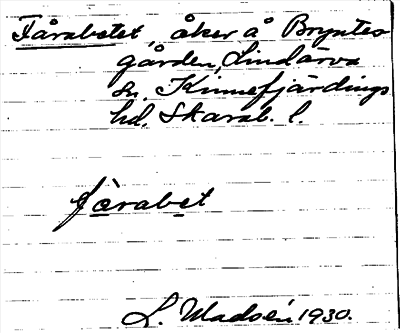 Fårabetet, åker å Bryntes
gården, Lindärva
sn, Kinnefjärdings
hd. Skarab. l.
fårabet
L. Madsén 1930.